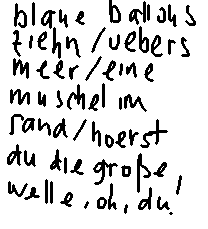 blaue ballons
ziehn/uebers
meer/eine
muschel im
sand/hoerst
du die große
welle, oh, du!